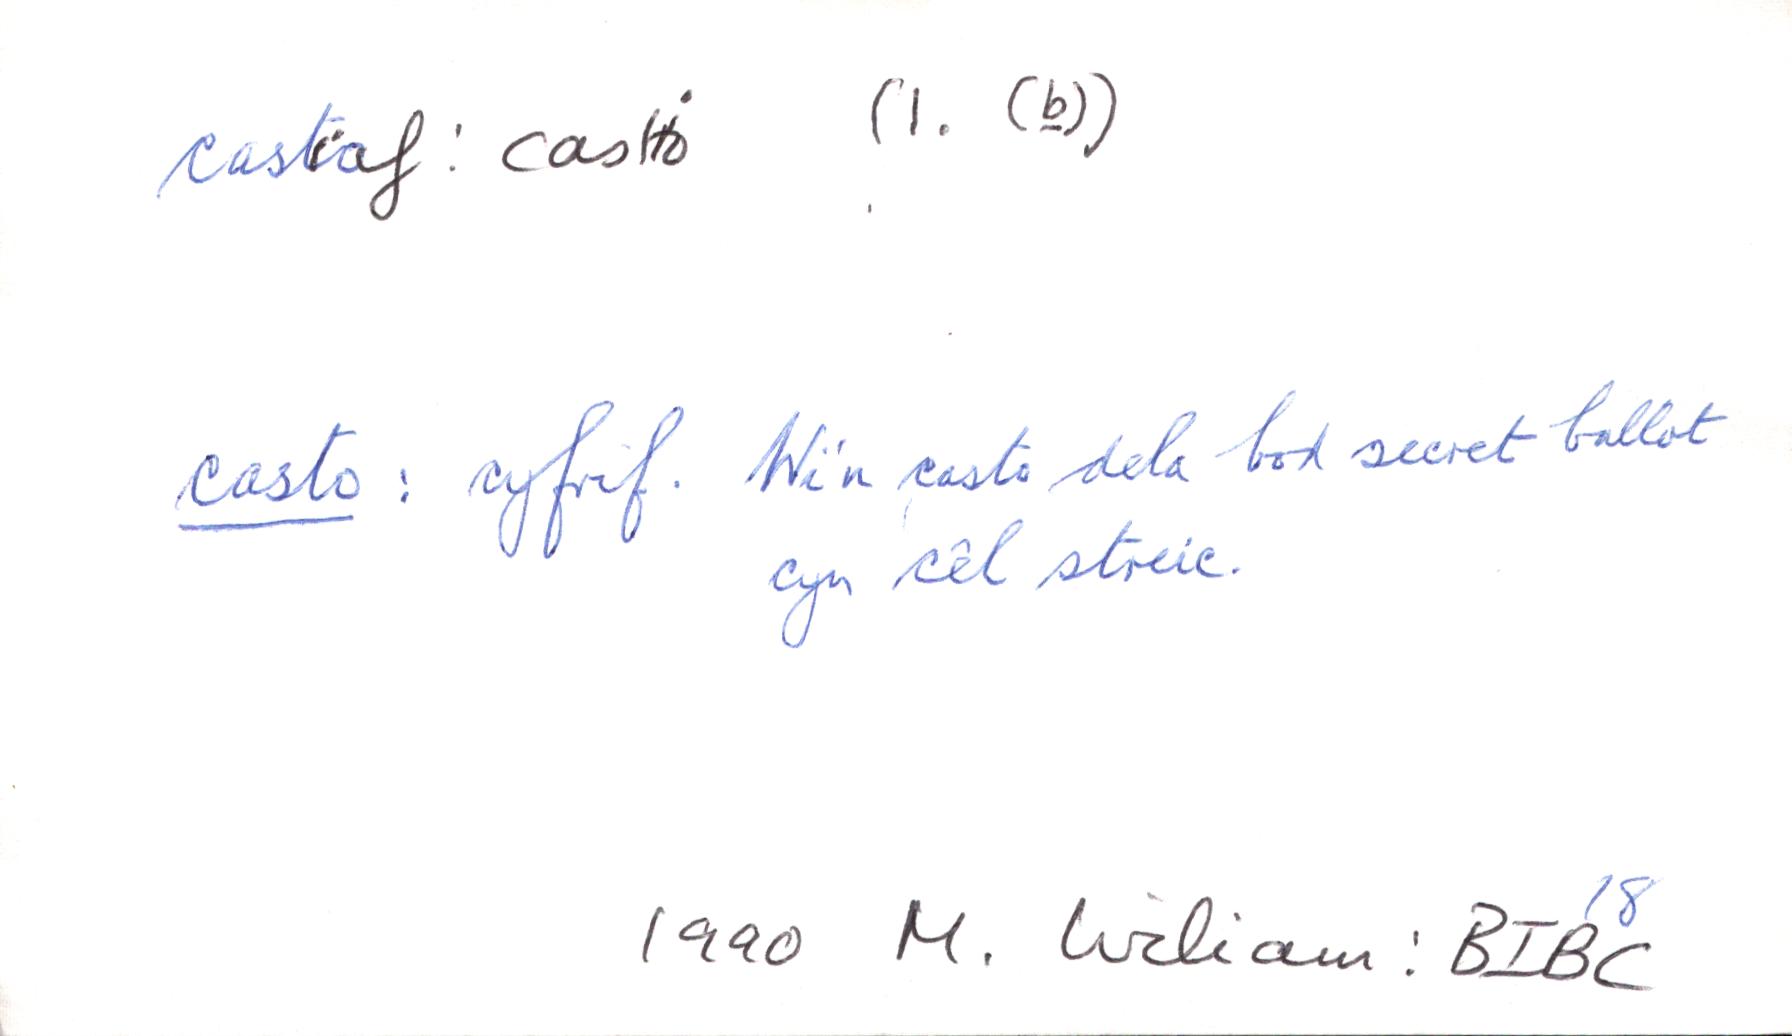 castiaf: castio (1. (b))
casto: cyfrif. Wi'n casto dela bod secret ballot
cyn cêl streic.
18
1990 M. Wiliam: BIBC